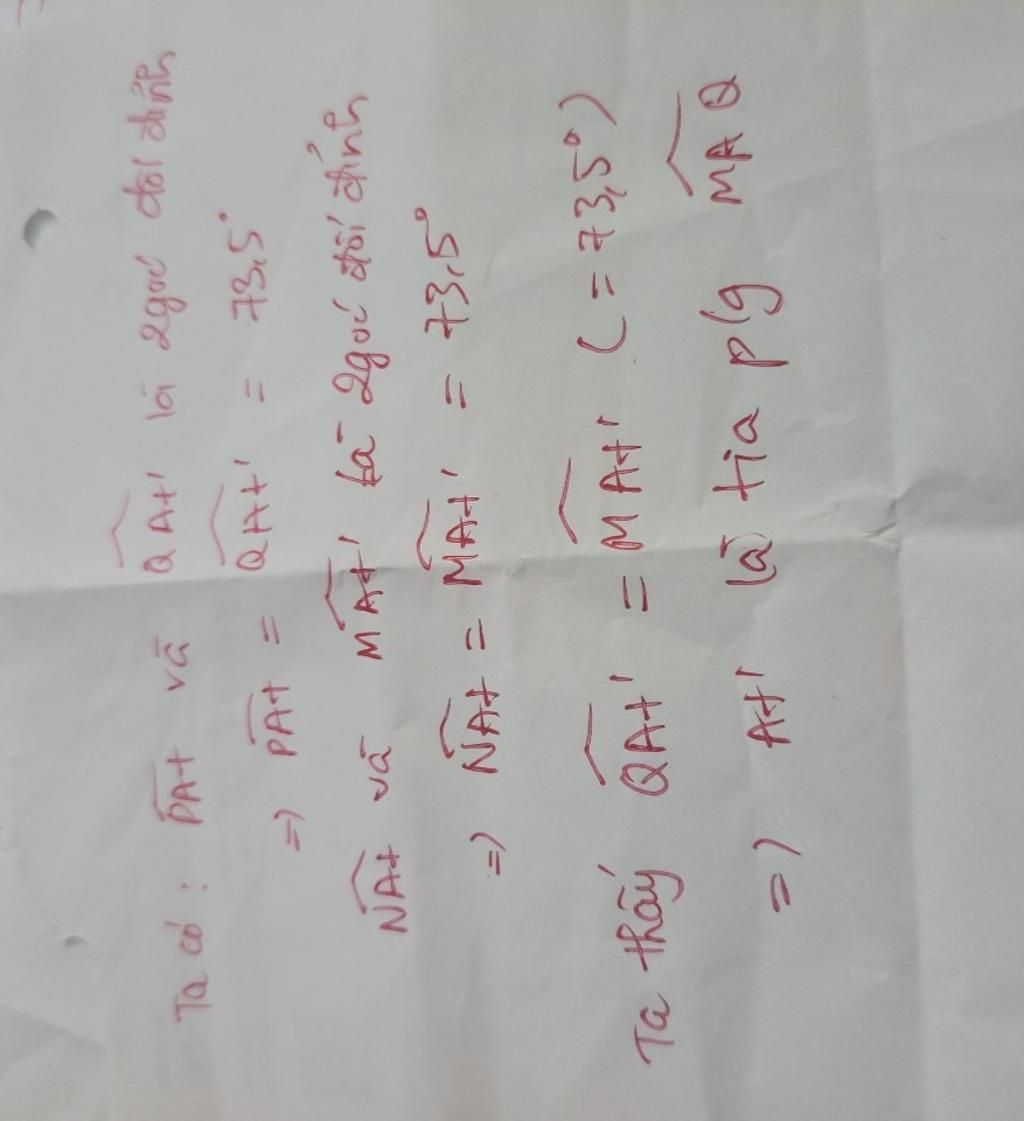 Ta có : P̂At và Q̂At' là 2góc đối đỉnh
=> P̂At = Q̂At' = 73,5°
N̂At và M̂At' là 2góc đối đỉnh
=> N̂At = M̂At' = 73,5°
Ta thấy Q̂At' = M̂At' ( = 73,5°)
=> At' là tia p/g M̂AQ